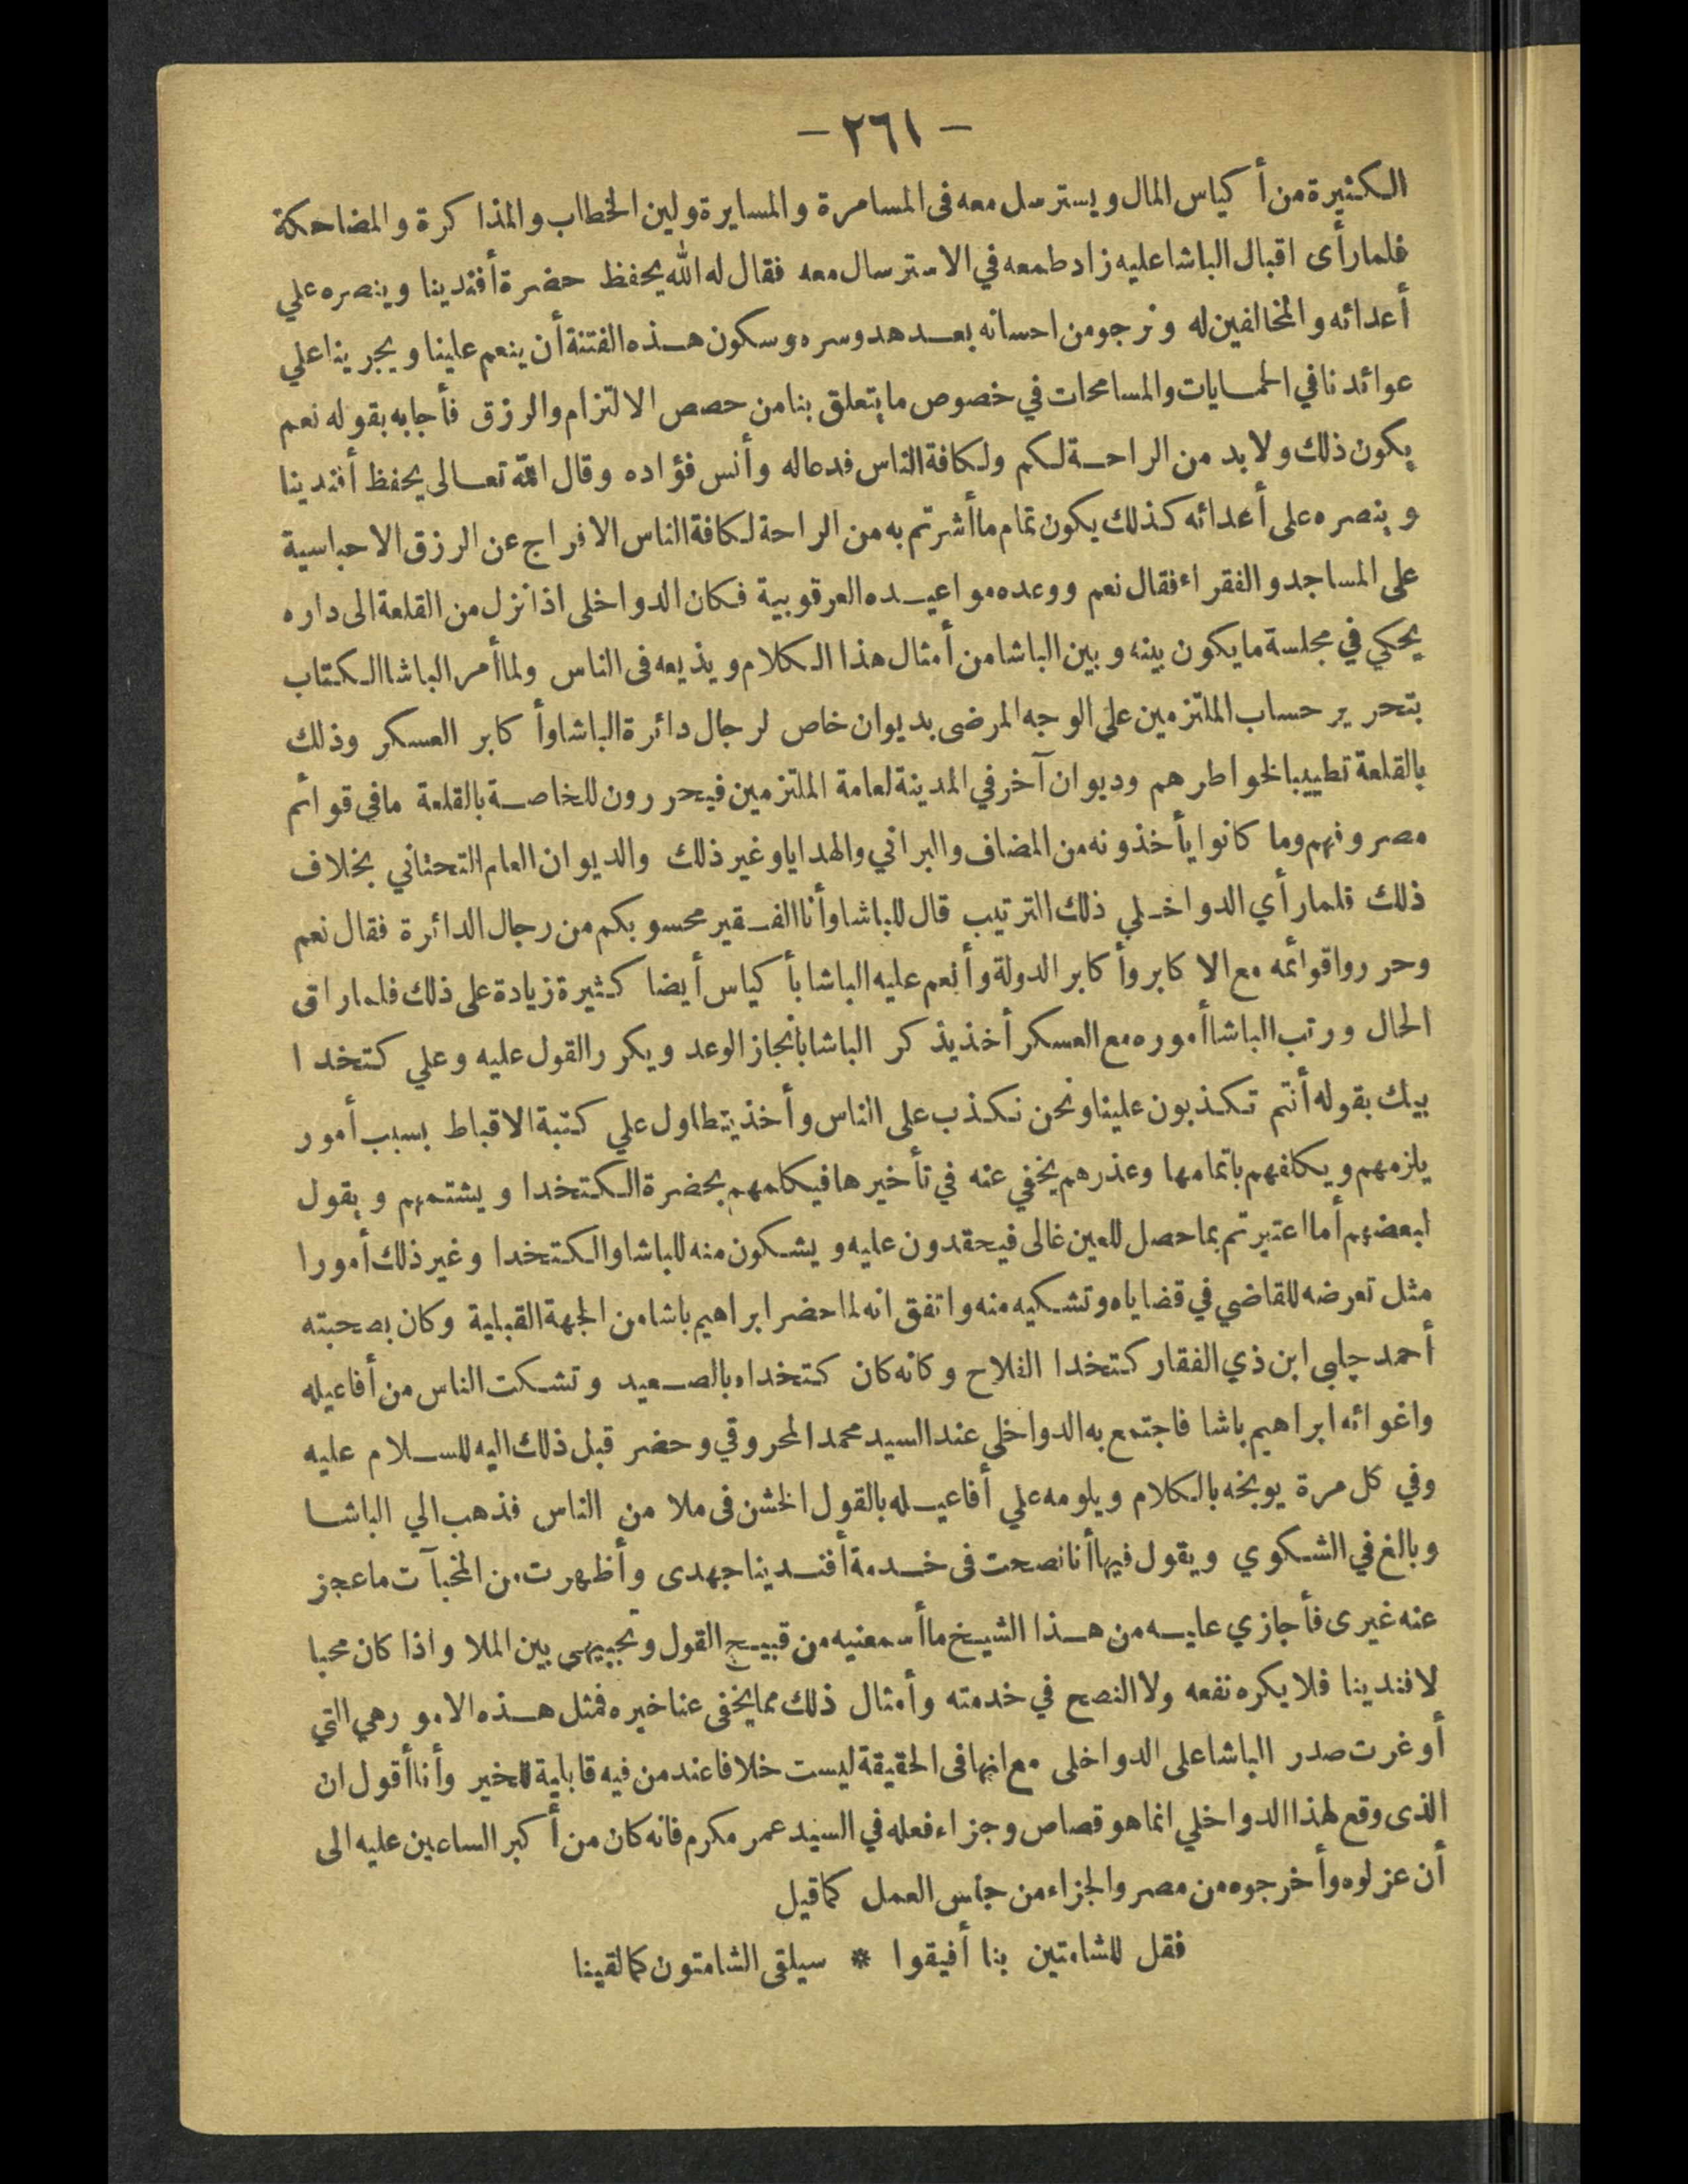 — ٢٦١ —
الكثيرة من أكياس المال ويسترسل معه فى المسامرة والمسايرة ولين الخطاب والمذاكرة والمضاحكة
فلما رأى اقبال الباشا عليه زاد طمعه في الاسترسال معه فقال له الله يحفظ حضرة أفندينا وينصره علي
أعدائه والمخالفين له ونرجو من احسانه بعد هدو سره وسكون هذه الفتنة أن ينعم علينا ويجرينا علي
عوائدنا في الحمايات والمسامحات في خصوص ما يتعلق بنا من حصص الالتزام والرزق فأجابه بقوله نعم
يكون ذلك ولا بد من الراحة لكم ولكافة الناس فدعا له وأنس فؤاده وقال الله تعالى يحفظ أفندينا
وينصره على أعدائه كذلك يكون تمام ما أشرتم به من الراحة لكافة الناس الافراج عن الرزق الاحباسية
على المساجد والفقراء فقال نعم ووعده مواعيده العرقوبية فكان الدواخلى اذا نزل من القلعة الى داره
يحكي في مجلسة ما يكون بينه وبين الباشا من أمثال هذا الكلام ويذيعه فى الناس ولما أمر الباشا الكتاب
بتحرير حساب الملتزمين علي الوجه المرضى بديوان خاص لرجال دائرة الباشا وأكابر العسكر وذلك
بالقلعة تطييبا لخواطرهم وديوان آخر في المدينة لعامة الملتزمين فيحررون للخاصة بالقلعة ما فى قوائم
مصروفهم وما كانوا يأخذونه من المضاف والبراني والهدايا وغير ذلك والديوان العام التحتاني بخلاف
ذلك فلما رأي الدواخلي ذلك الترتيب قال للباشا وأنا الفقير محسوبكم من رجال الدائرة فقال نعم
وحرروا قوائمه مع الاكابر وأكابر الدولة وأنعم عليه الباشا بأكياس أيضا كثيرة زيادة على ذلك فلما راقى
الحال ورتب الباشا أموره مع العسكر أخذ يذكر الباشا بانجاز الوعد ويكرر القول عليه وعلي كتخدا
بيك بقوله أنتم تكذبون علينا ونحن نكذب على الناس وأخذ يتطاول علي كتبة الاقباط بسبب أمور
يلزمهم ويكلفهم باتمامها وعذرهم يخفي عنه في تأخيرها فيكلمهم بحضرة الكتخدا ويشتمهم ويقول
لبعضهم أما اعتبرتم بما حصل للعين غالى فيحقدون عليه ويشكون منه للباشا والكتخدا وغير ذلك أمورا
مثل تعرضه للقاضي في قضاياه وتشكيه منه واتفق انه لما حضر ابراهيم باشا من الجهة القبلية وكان بصحبته
أحمد چلبي ابن ذي الفقار كتخدا الفلاح وكانه كان كتخداه بالصعيد وتشكت الناس من أفاعيله
واغوائه ابراهيم باشا فاجتمع به الدواخلى عند السيد محمد المحروقي وحضر قبل ذلك اليه للسلام عليه
وفي كل مرة يوبخه بالكلام ويلومه علي أفاعيله بالقول الخشن فى ملا من الناس فذهب الي الباشا
وبالغ في الشكوي ويقول فيها أنا نصحت فى خدمة أفندينا جهدى وأظهرت من المخبآت ما عجز
عنه غيرى فأجازي عليه من هذا الشيخ ما أسمعنيه من قبيح القول وتجبيهى بين الملا واذا كان محبا
لافندينا فلا يكره نفعه ولا النصح في خدمته وأمثال ذلك مما يخفى عنا خبره فمثل هذه الامور هي التي
أوغرت صدر الباشا على الدواخلى مع انها فى الحقيقة ليست خلافا عند من فيه قابلية للخير وأنا أقول ان
الذى وقع لهذا الدواخلي انما هو قصاص وجزاء فعله في السيد عمر مكرم فانه كان من أكبر الساعين عليه الى
أن عزلوه وأخرجوه من مصر والجزاء من جنس العمل كما قيل
فقل للشامتين بنا أفيقوا * سيلقى الشامتون كما لقينا